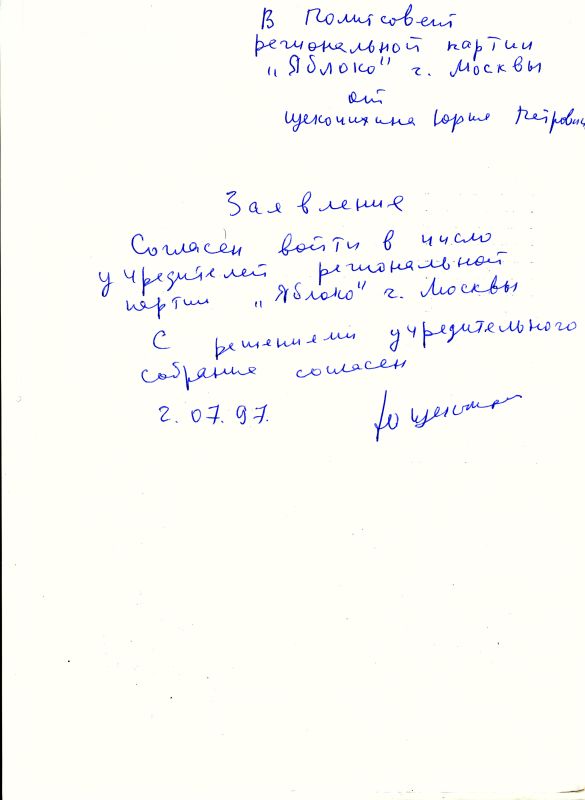 В Политсовет
региональной партии
"Яблоко" г. Москвы
от
Щекочихина Юрия Петровича
Заявление
Согласен войти в число
учредителей региональной
партии "Яблоко" г. Москвы
С решениями учредительного
собрания согласен
2.07.97.
Ю Щекочихин